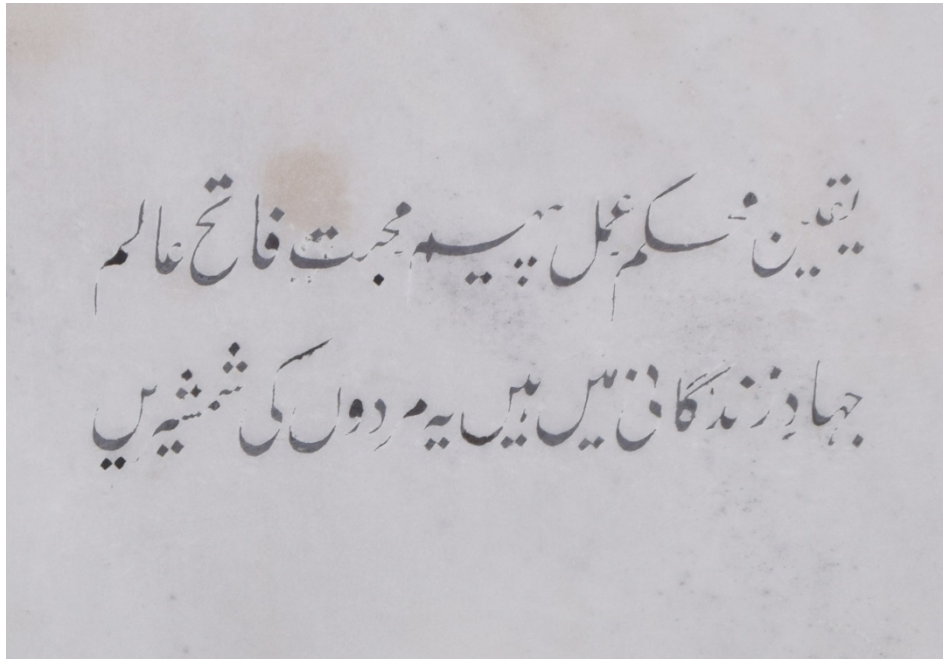 یقین محکم عمل پیہم محبت فاتح عالم
جہادِ زندگانی میں ہیں یہ مردوں کی شمشیریں